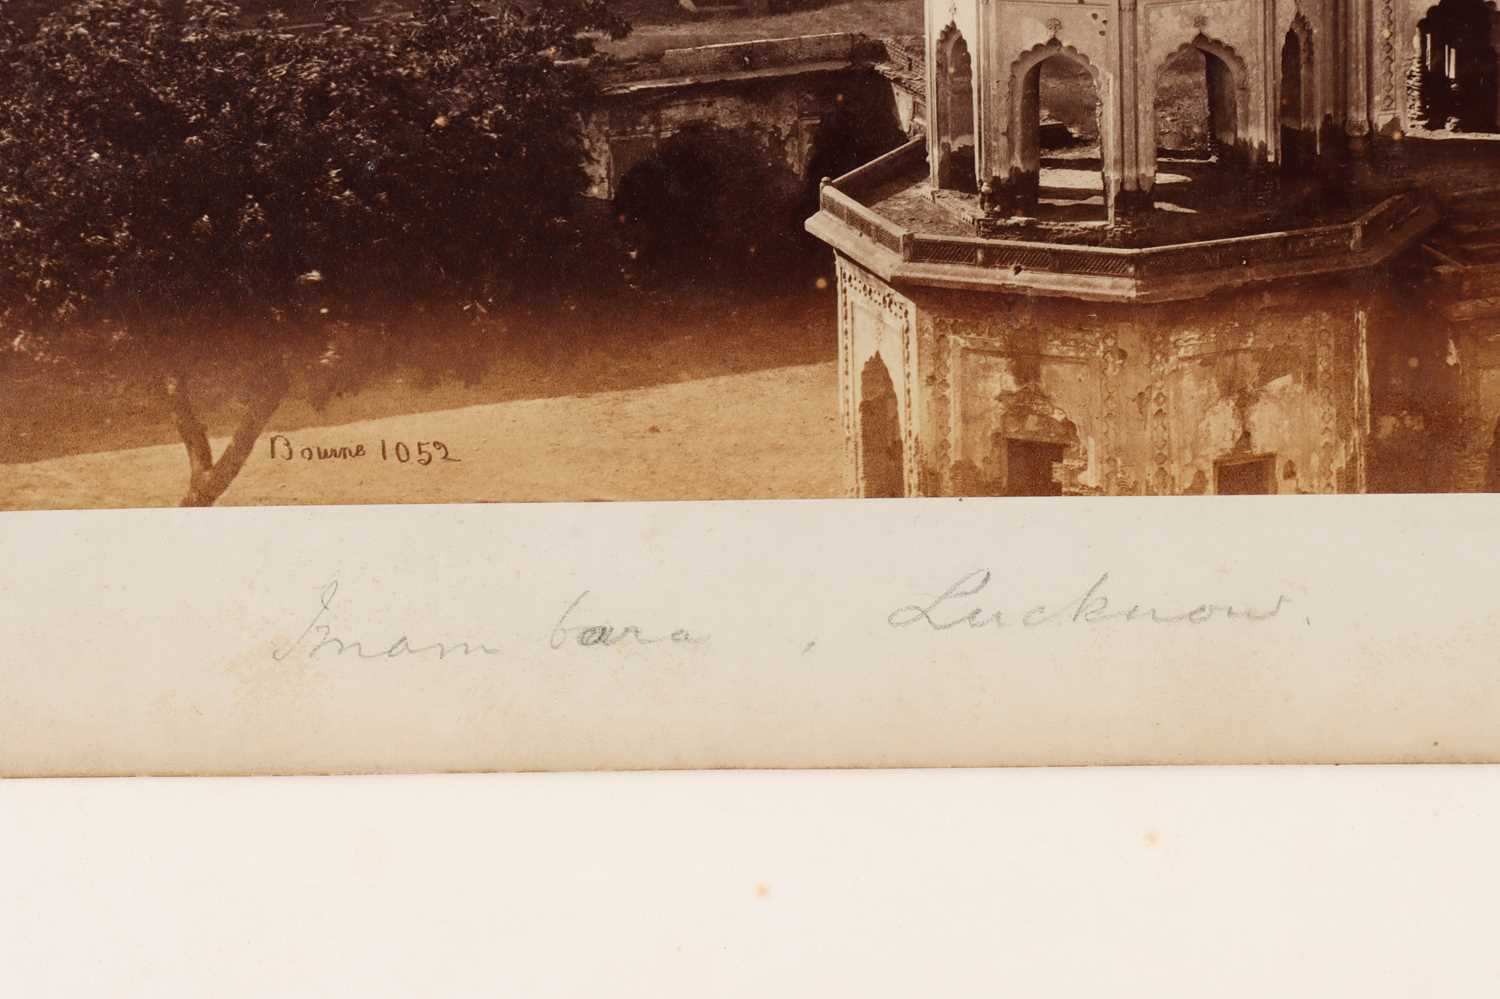 Bourne 1052
Imam bara, Lucknow.